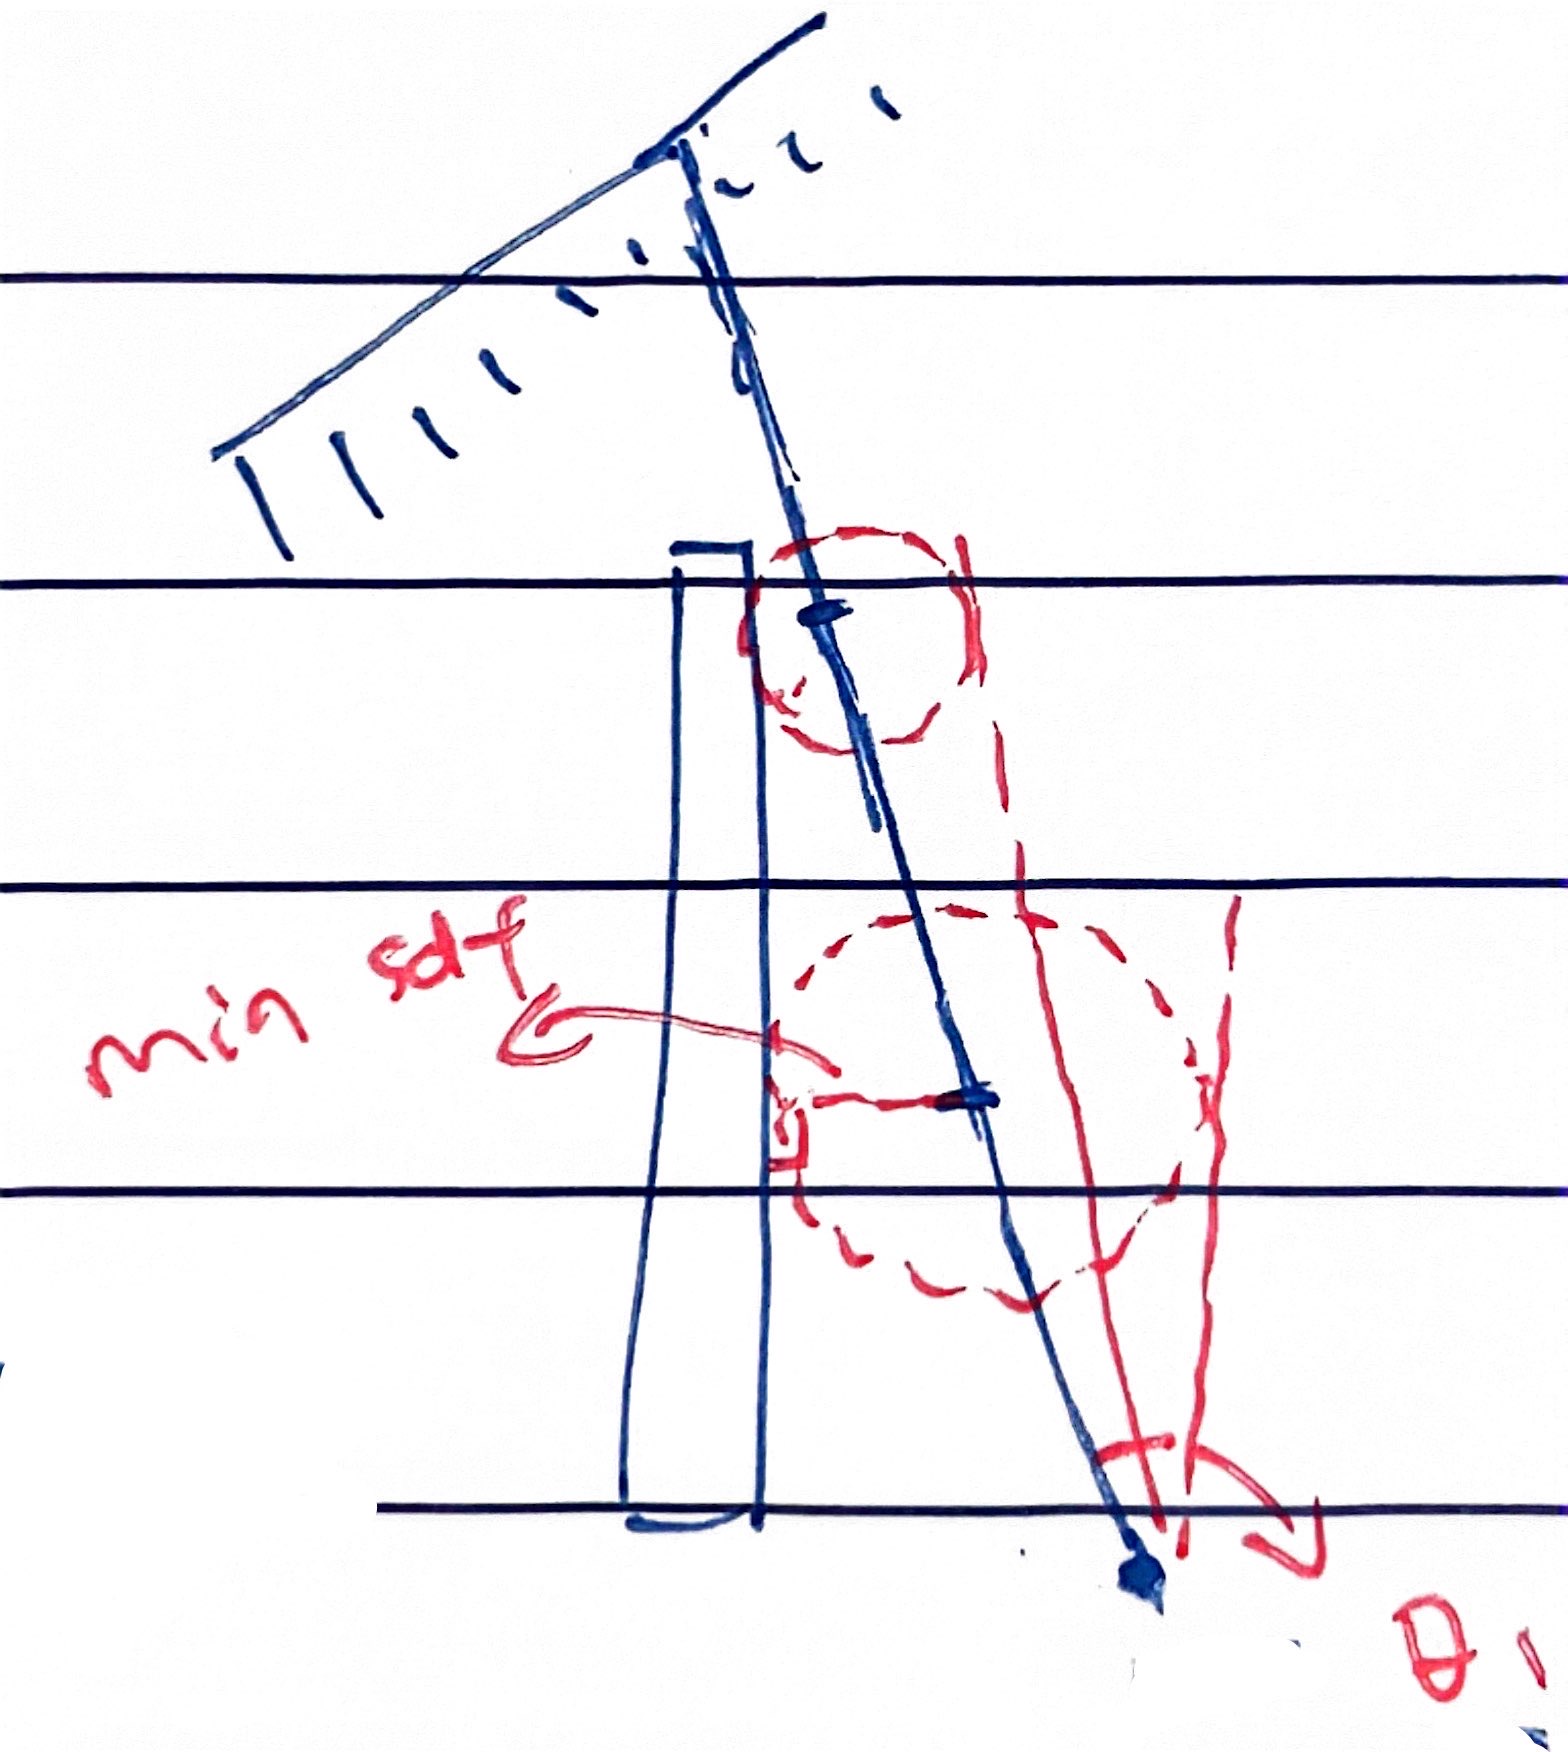 min sdf
θ